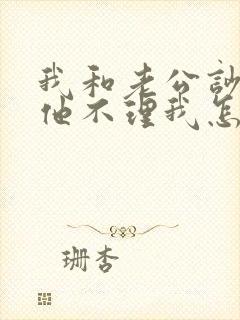 我和老公
他不理我怎
珊杏